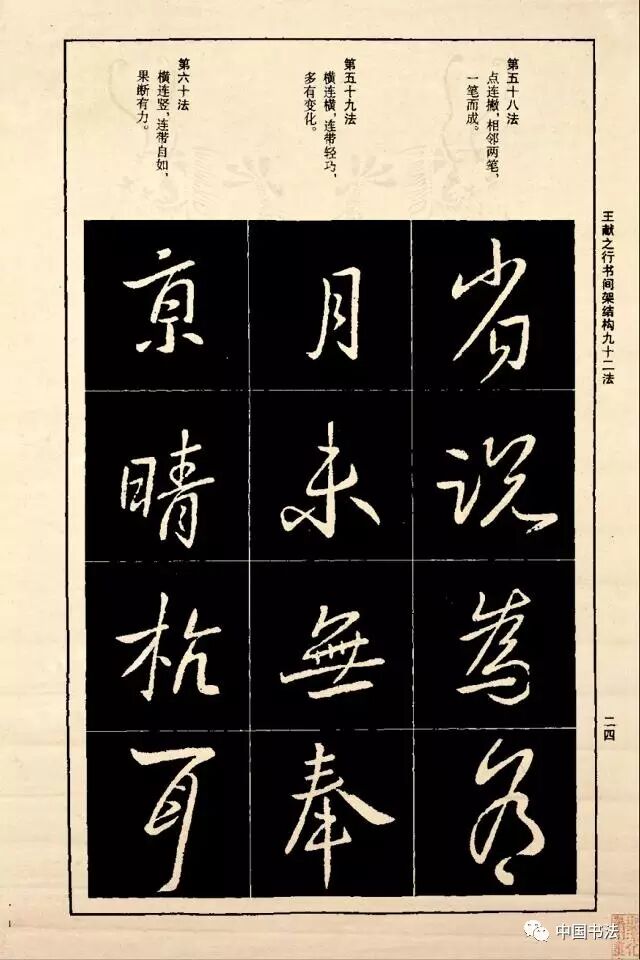 王献之行书间架结构九十二法
二四
第五十八法
点连撇，相邻两笔，
一笔而成。
省
说
為
第五十九法
横连横，连带轻巧，
多有变化。
月
未
無
奉
第六十法
横连竖，连带自如，
果断有力。
亰
晴
杭
耳
中国书法